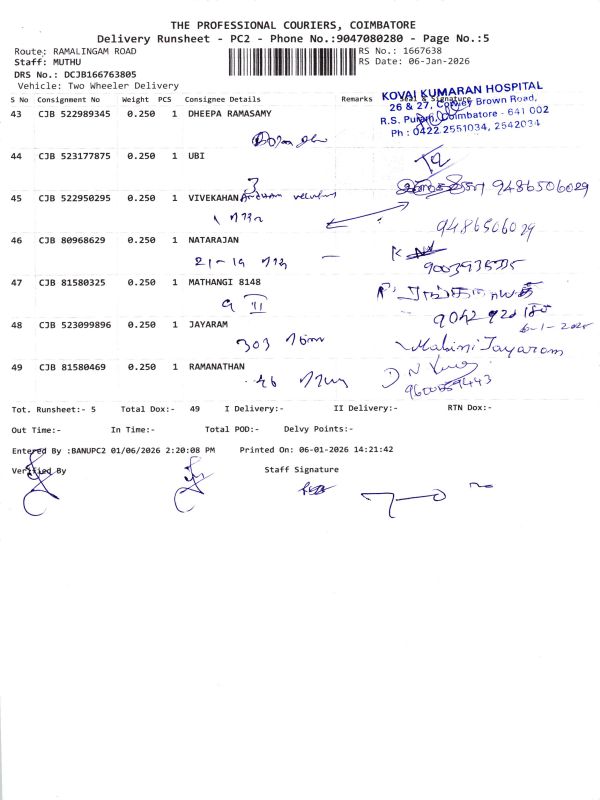 THE PROFESSIONAL COURIERS, COIMBATORE
Delivery Runsheet - PC2 - Phone No.:9047080280 - Page No.:5
Route: RAMALINGAM ROAD RS No.: 1667638
Staff: MUTHU RS Date: 06-Jan-2026
DRS No.: DCJB166763805
Vehicle: Two Wheeler Delivery
KOVAI KUMARAN HOSPITAL
26 & 27, Cowley Brown Road,
R.S. Puram, Coimbatore - 641 002
Ph : 0422 2551034, 2542034
S No Consignment No Weight PCS Consignee Details Remarks Seal & Signature
43 CJB 522989345 0.250 1 DHEEPA RAMASAMY
44 CJB 523177875 0.250 1 UBI
45 CJB 522950295 0.250 1 VIVEKAHAN
9486506029
46 CJB 80968629 0.250 1 NATARAJAN
9486506029
21-19
47 CJB 81580325 0.250 1 MATHANGI 8148
9 II
48 CJB 523099896 0.250 1 JAYARAM
303
6-1-2026
Mabini Jayaram
49 CJB 81580469 0.250 1 RAMANATHAN
46
Tot. Runsheet:- 5 Total Dox:- 49 I Delivery:- II Delivery:- RTN Dox:-
Out Time:- In Time:- Total POD:- Delvy Points:-
Entered By :BANUPC2 01/06/2026 2:20:08 PM Printed On: 06-01-2026 14:21:42
Verified By Staff Signature